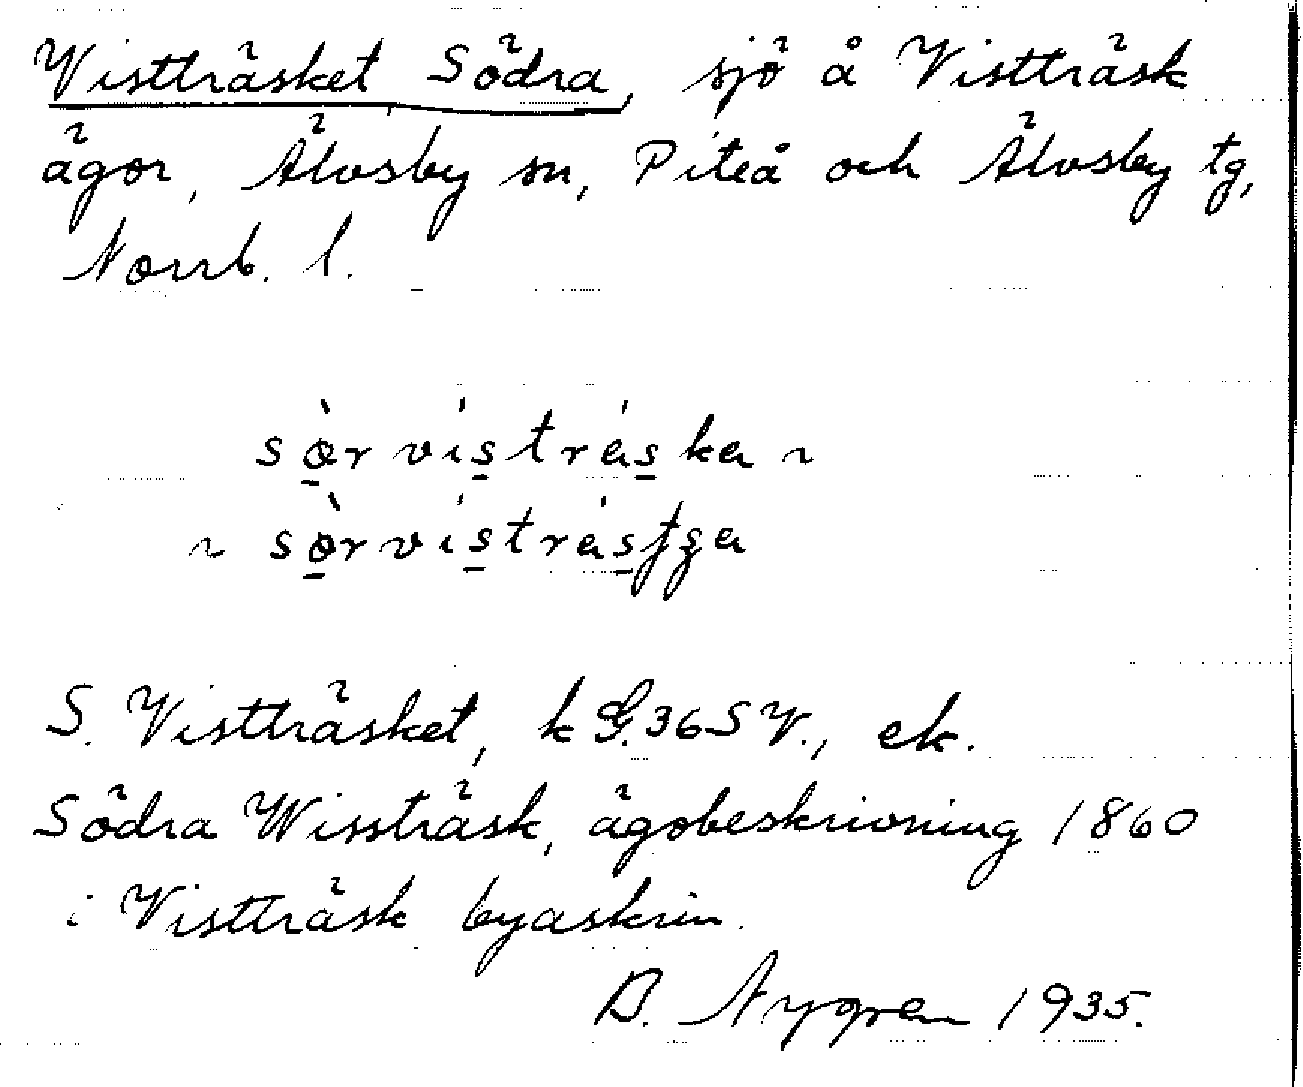 Vistträsket Södra, sjö å Vistträsk
ägor, Älvsby sn, Piteå och Älvsby tg,
Norrb. l.
sørvistráska ~
~ sørvistrástga
S. Vistträsket, k G.36SV., ek.
Södra Wissträsk, ägobeskrivning 1860
i Vistträsk byaskrin.
B. Nygren 1935.